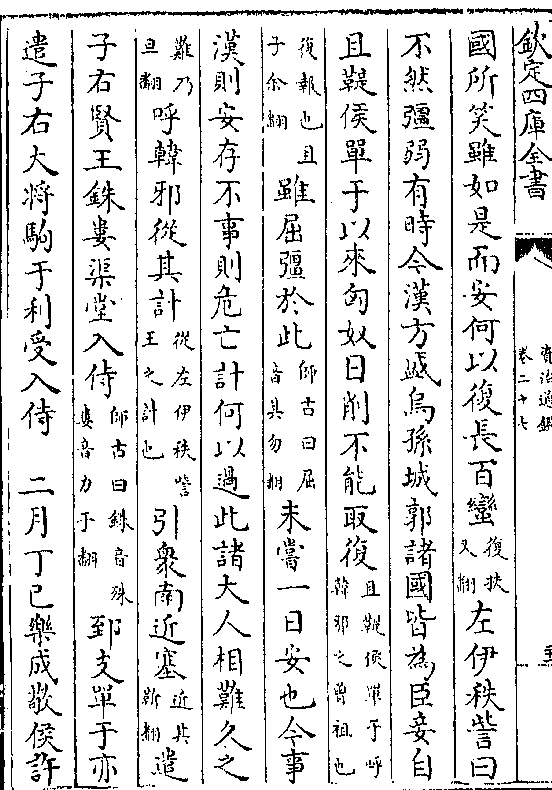 欽定四庫全書
資治通鑑
卷二十七
國所笑雖如是而安何以復長百蠻復扶又翻左伊秩訾曰
不然彊弱有時今漢方盛烏孫城郭諸國皆為臣妾自
且鞮侯單于以來匈奴日削不能取復且鞮侯單于呼韓邪之曾祖也
復報也且子余翻雖屈彊於此師古曰屈音其勿翻未嘗一日安也今事
漢則安存不事則危亡計何以過此諸大人相難久之
難乃旦翻呼韓邪從其計從左伊秩訾王之計也引衆南近塞近其靳翻遣
子右賢王銖婁渠堂入侍師古曰銖音殊婁音力于翻郅支單于亦
遣子右大將駒于利受入侍　二月丁巳樂成敬侯許